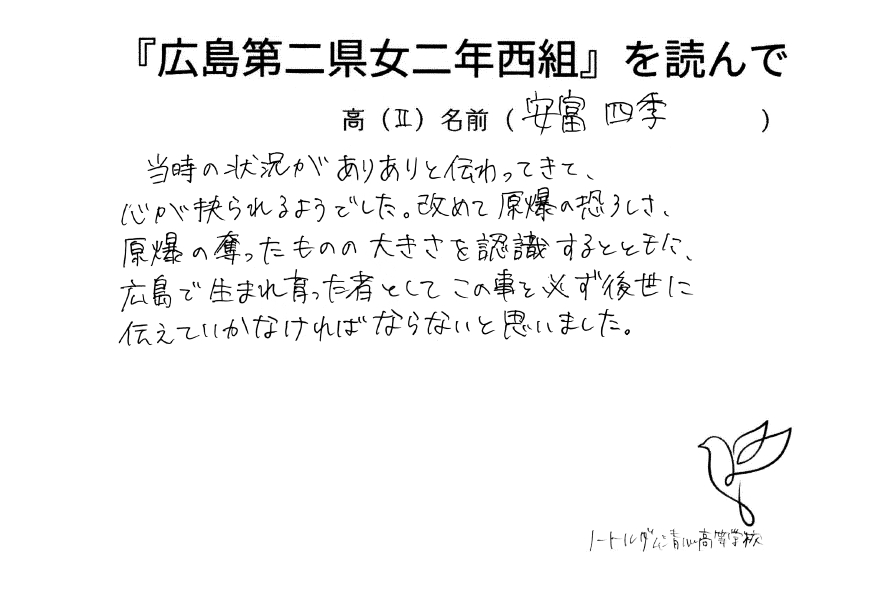 『広島第二県女二年西組』を読んで
高（Ⅱ）名前（安富 四季　　　）
当時の状況がありありと伝わってきて、
心が抉られるようでした。改めて原爆の恐ろしさ、
原爆の奪ったものの大きさを認識するとともに、
広島で生まれ育った者としてこの事を必ず後世に
伝えていかなければならないと思いました。
ノートルダム清心高等学校